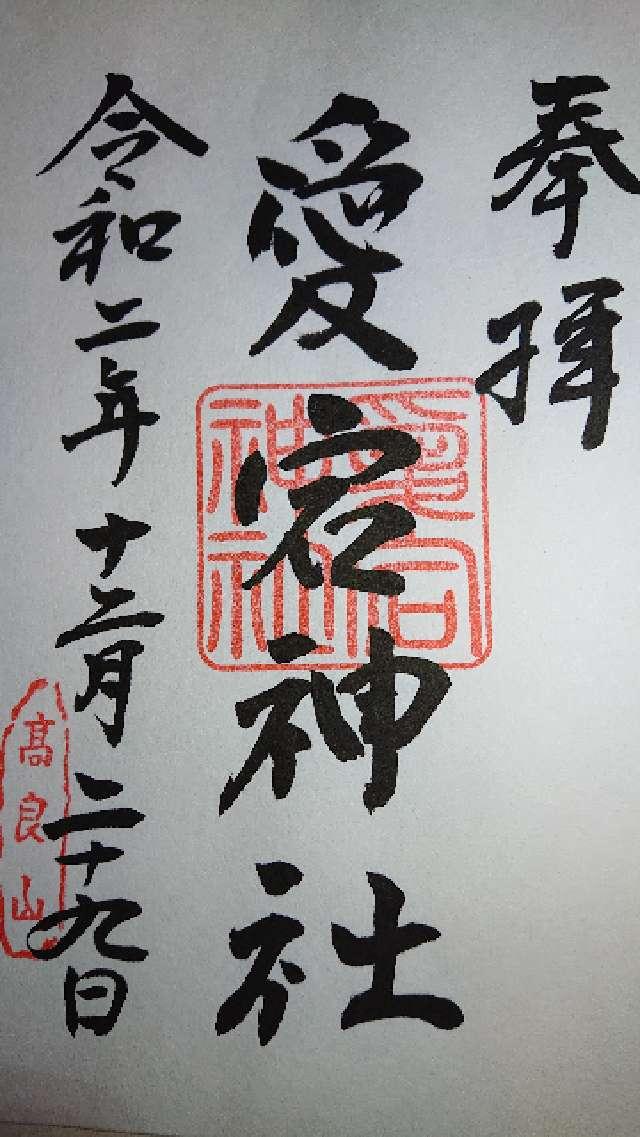 奉拝
愛宕神社
愛宕神社
令和二年十二月二十九日
高良山